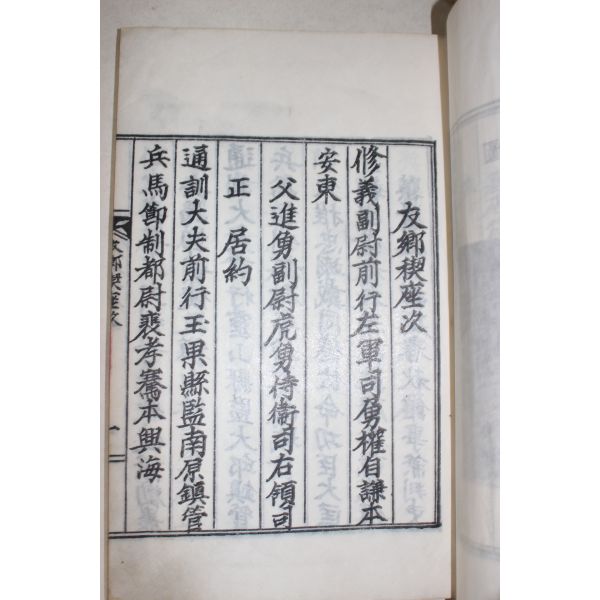 友鄉稧座次
修義副尉前行左軍司勇權自謙本
安東
父進勇副尉虎勇侍衛司右領司
正 居約
通訓大夫前行玉果縣監南原鎮管
兵馬節制都尉裵孝騫本興海
友鄉稧座次
一